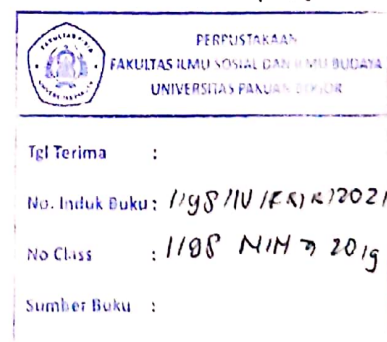 PERPUSTAKAAN
FAKULTAS ILMU SOSIAL DAN ILMU BUDAYA
UNIVERSITAS PAKUAN BOGOR
Tgl Terima :
No. Induk Buku :
No Class : 1198 MIH 2019
Sumber Buku :